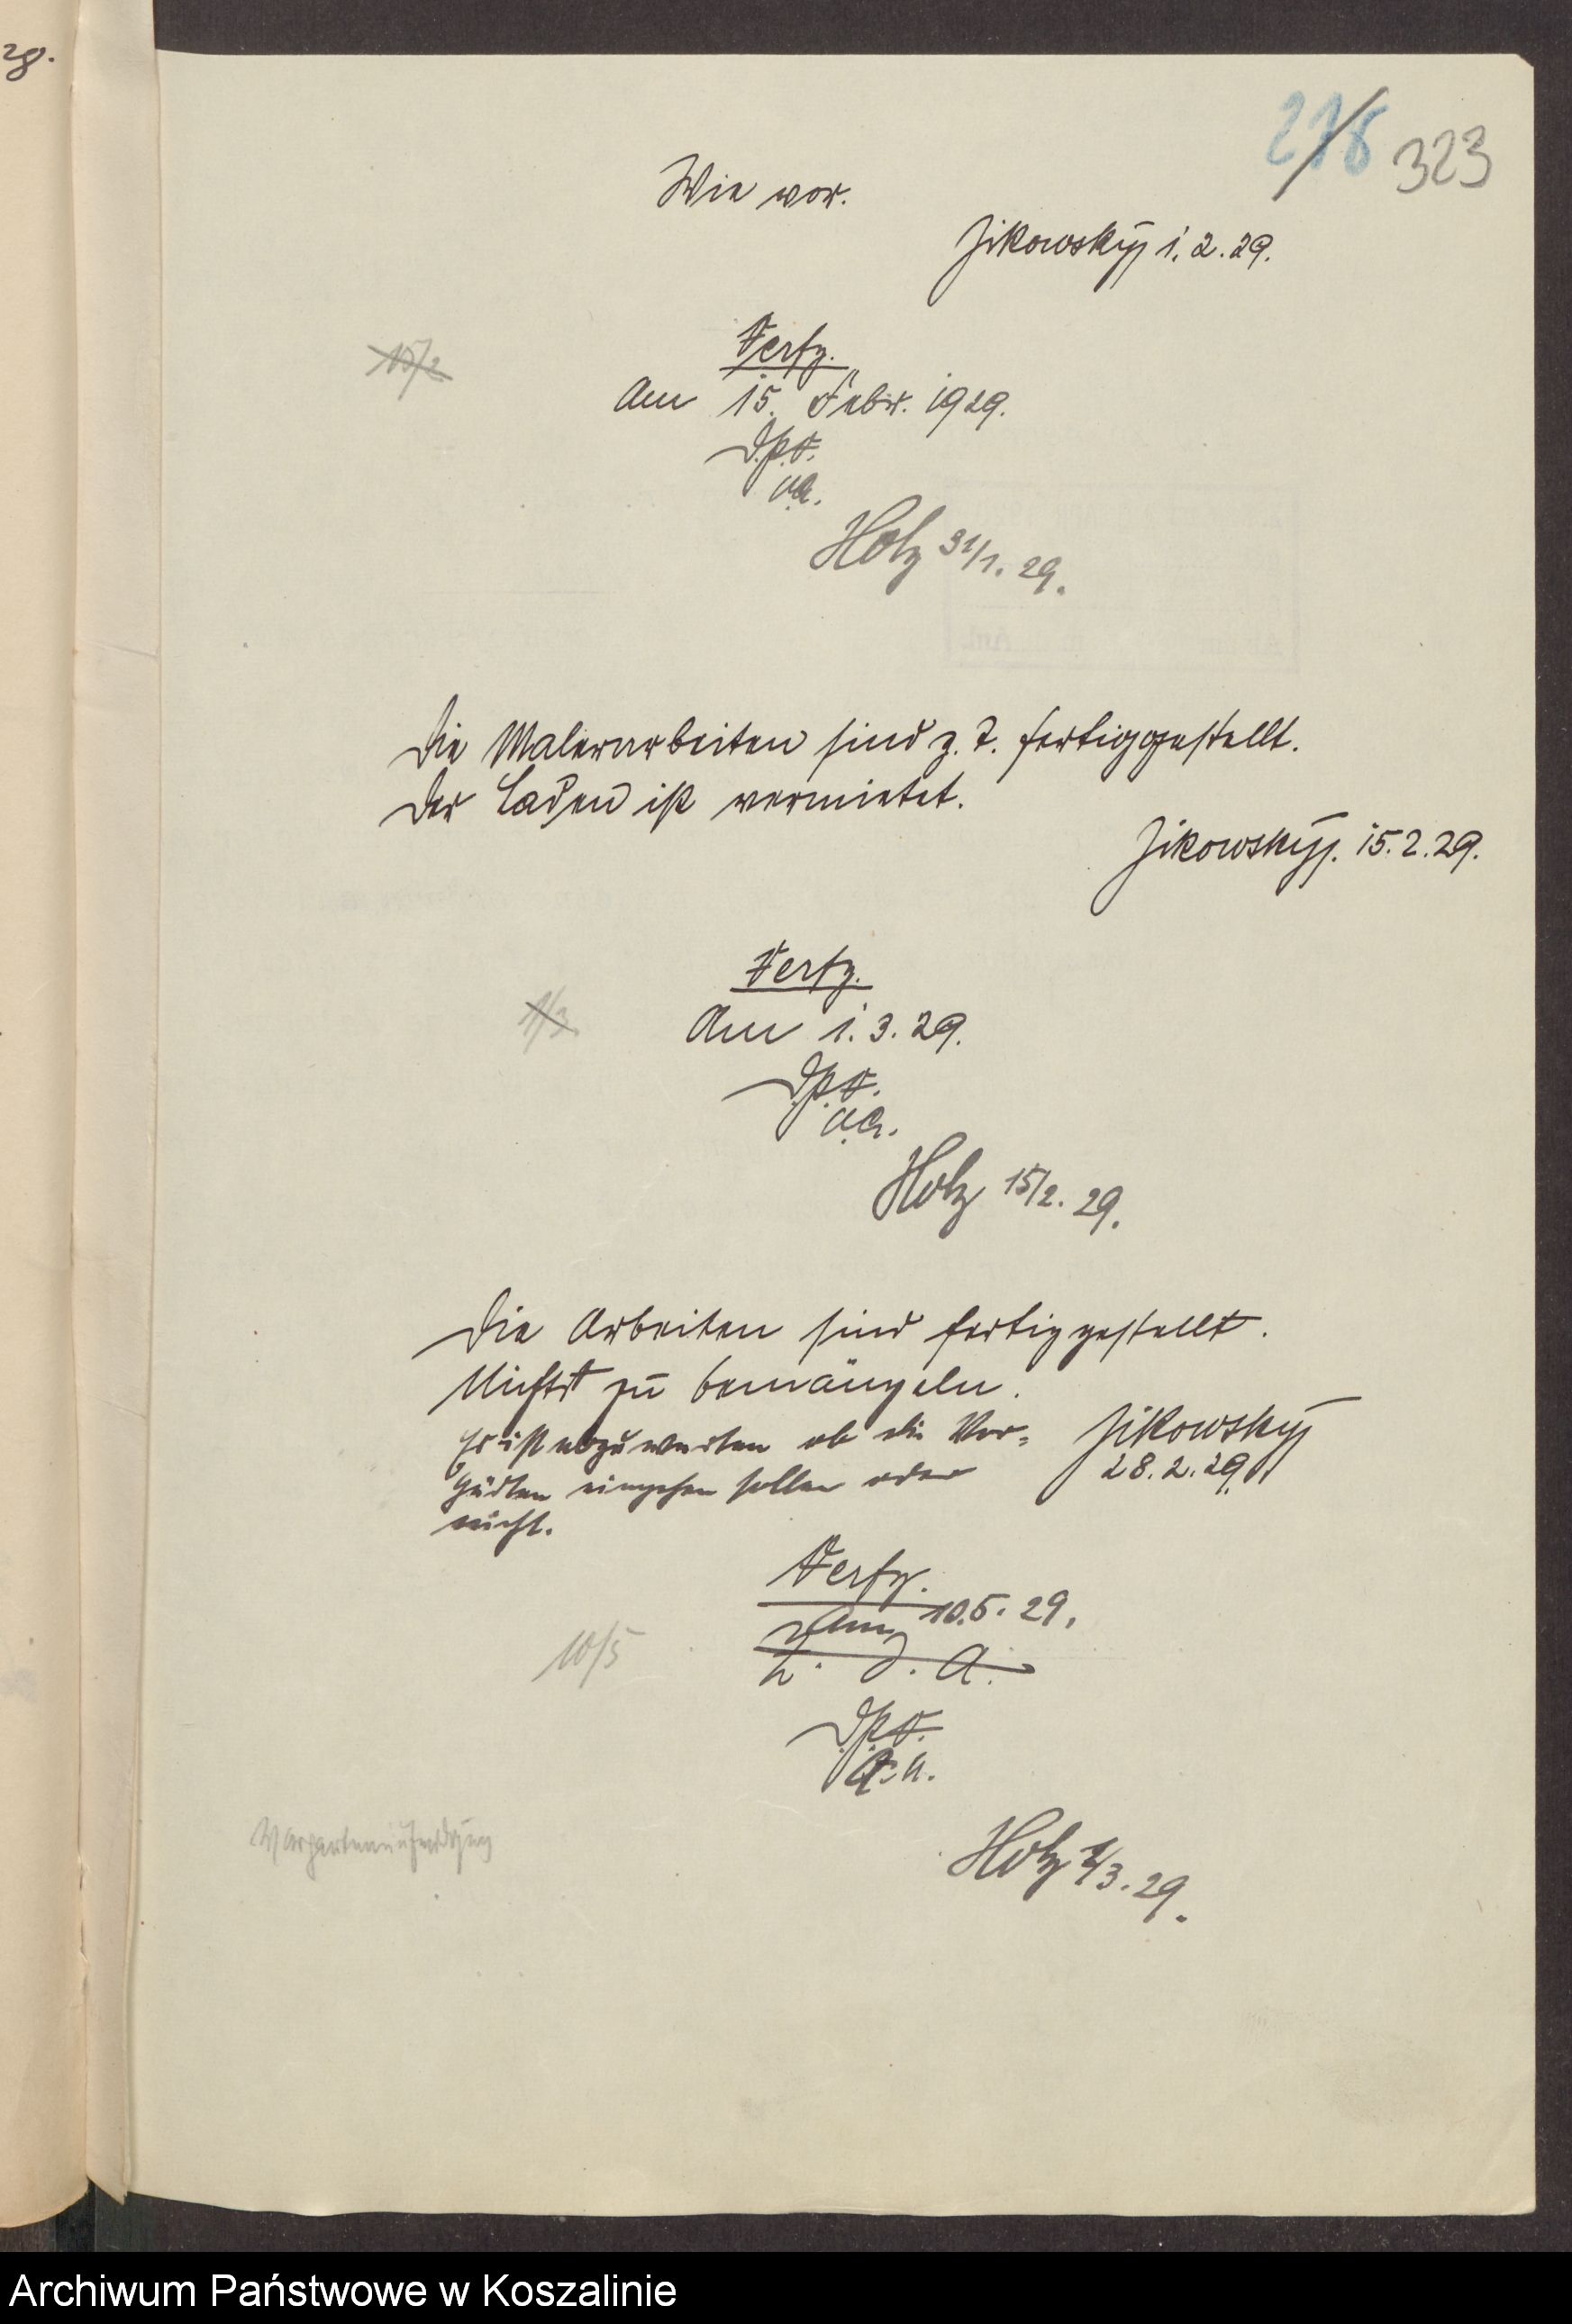 28.
278 323
Wie vor.
Jikowsky 1.2.29.
15/2
Verfg.
Am 15. Febr. 1929.
D.P.V.
Holz 31/1. 29.
Die Malerarbeiten sind z. T. fertiggestellt.
Der Laden ist vermietet.
Jikowsky. 15.2.29.
Verfg.
1/3
Am 1.3.29.
D.P.V.
Holz 15/2. 29.
Die Arbeiten sind fertiggestellt.
Nichts zu bemängeln.
Es ist abzuwarten ob die Vor=
gärten eingehen sollen oder
nicht.
Jikowsky
28.2.29.
Verfg.
Am 10.5.29.
10/5
D.P.V.
Holz 1/3.29.
Archiwum Państwowe w Koszalinie